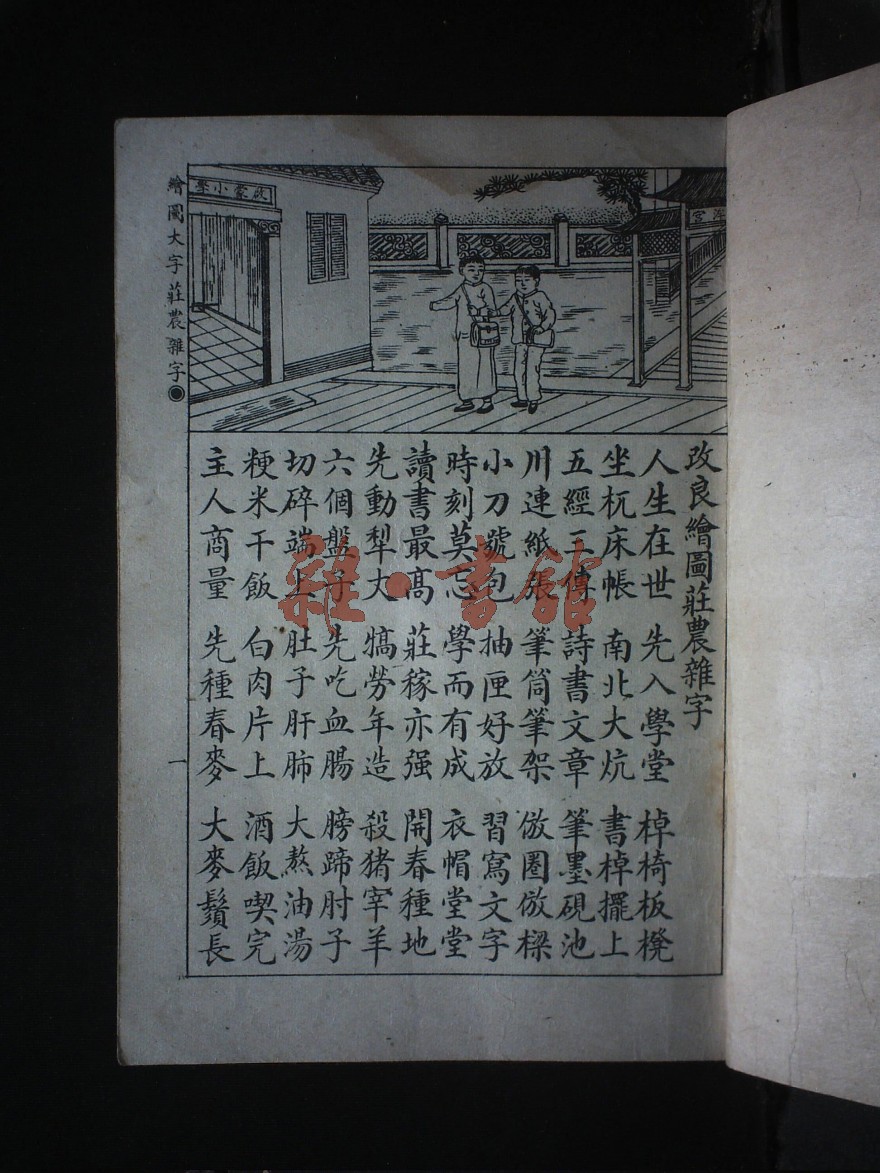 繪圖大字莊農雜字
啟蒙小學
泮宮
改良繪圖莊農雜字
人生在世 先入學堂 棹椅板櫈
坐杌床帳 南北大炕 書棹擺上
五經三傳 詩書文章 筆墨硯池
川連紙張 筆筒筆架 倣圈倣樑
小刀號包 抽匣好放 習寫文字
時刻莫忘 學而有成 衣帽堂堂
讀書最高 莊稼亦强 開春種地
先動犁大 犒勞年造 殺猪宰羊
六個盤子 先吃血腸 膀蹄肘子
切碎端上 肚子肝肺 大熬油湯
粳米干飯 白肉片上 酒飯喫完
主人商量 先種春麥 大麥鬚長
一
雜·書館